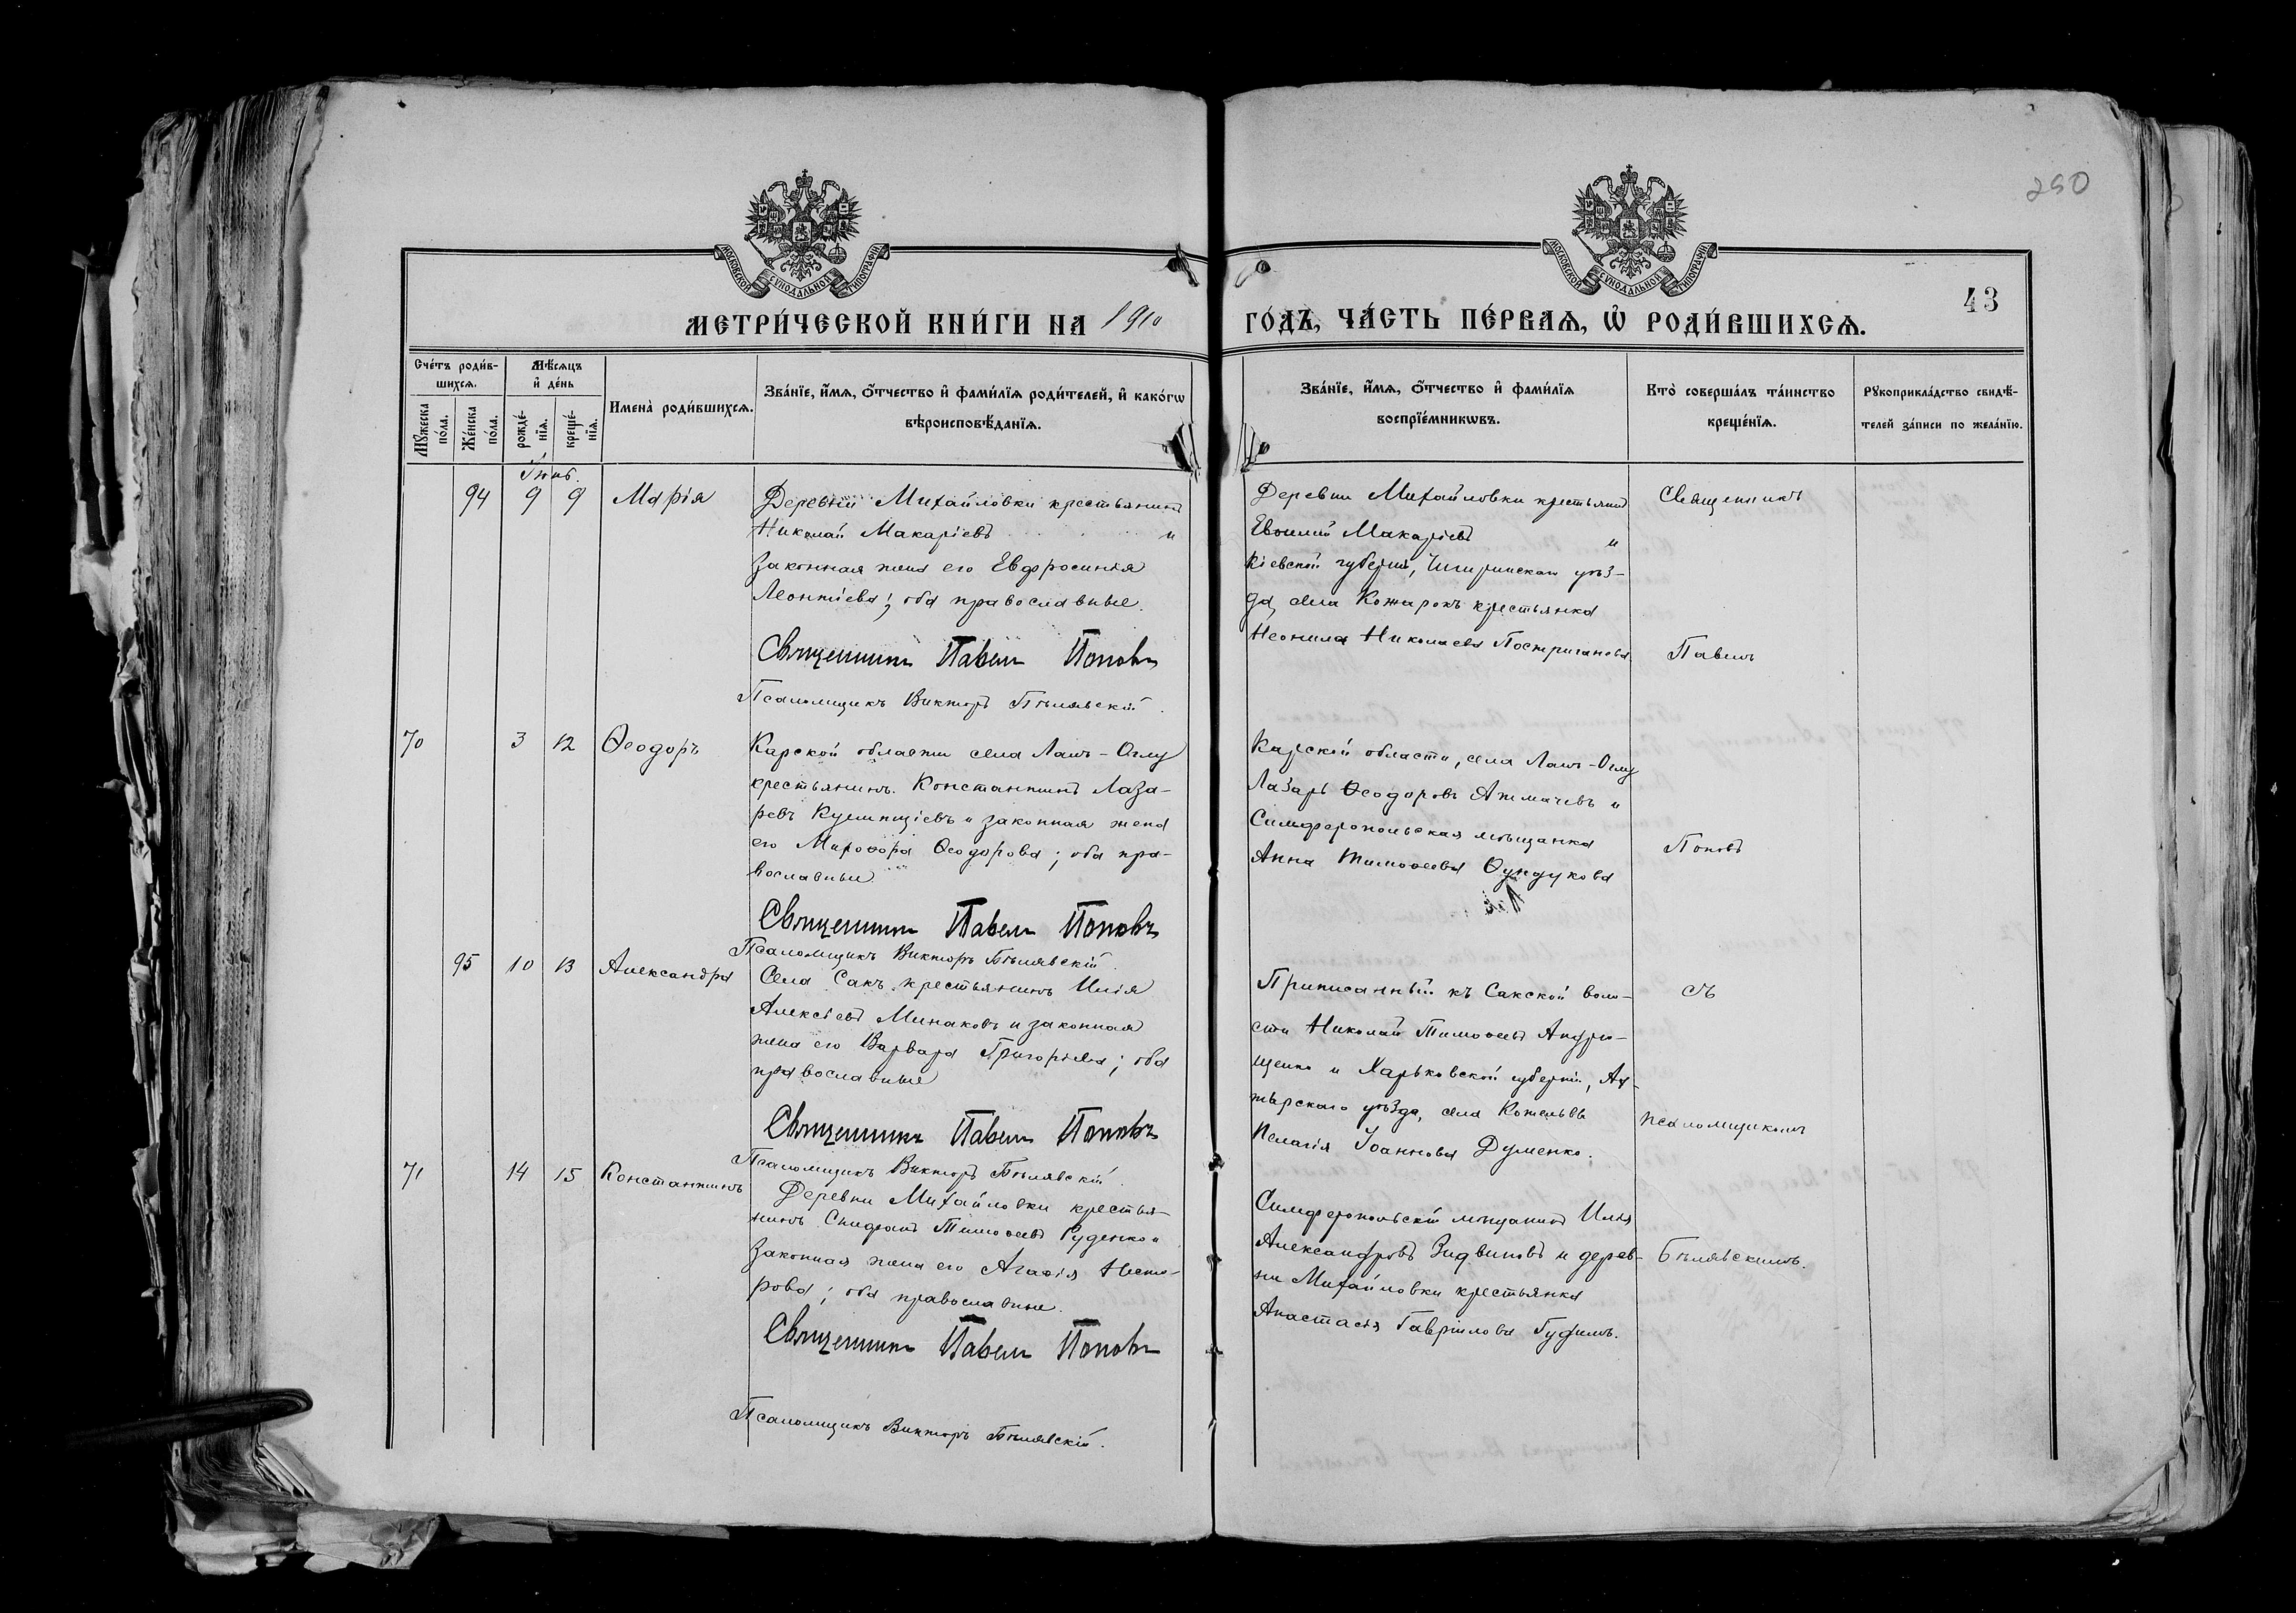 250
43
МОСКОВСКОЙ СУНОДАЛЬНОЙ ТИПОГРАФІИ
МОСКОВСКОЙ СУНОДАЛЬНОЙ ТИПОГРАФІИ
МЕТРИ́ЧЕСКОЙ КНИ́ГИ НА 1910
ГО́ДЪ, ЧА́СТЬ ПЕ́РВАѦ, Ѡ҆ РОДИ́ВШИХСѦ.
Сче́тъ роди́в-
шихсѧ.
Мꙋ́жеска
по́ла.
Же́нска
по́ла.
Мѣ́сѧцъ
и҆ де́нь
рожде́-
нїѧ.
креще́-
нїѧ.
Имена̀ роди́вшихсѧ.
Зва́нїе, и҆́мѧ, ѻ҆́тчество и҆ фами́лїѧ роди́телей, и҆ како́гѡ
вѣроисповѣ́данїѧ.
Зва́нїе, и҆́мѧ, ѻ҆́тчество и҆ фами́лїѧ
воспрїе́мникѡвъ.
Кто̀ соверша́лъ та́инство
креще́нїѧ.
Рꙋкоприкла́дство свидѣ́-
телей за́писи по жела́нїю.
Іюнь.
94 9 9 Марія
Деревни Михайловки крестьянинъ
Николай Макаріевъ и
законная жена его Евфросинія
Леонтіева; оба православные.
Священникъ Павелъ Поповъ
Псаломщикъ Викторъ Бѣлявскій.
Деревни Михайловки крестьянинъ
Макаріевъ и
Кіевской губерніи, Чигиринскаго уѣз-
да, села крестьянка
Неонила Николаева
Священникъ
Павелъ
70 3 12 Ѳеодоръ
Карской области села Лалъ-Оглу
крестьянинъ Константинъ Лаза-
ревъ и законная жена
его Мирофора Ѳеодорова; оба пра-
вославные
Священникъ Павелъ Поповъ
Псаломщикъ Викторъ Бѣлявскій.
Карской области, села Лалъ-Оглу
Лазарь Ѳеодоровъ и
Симферопольская мѣщанка
Анна Тимоѳеева Ѳундукова
Поповъ
95 10 13 Александра
Села Сакъ крестьянинъ Илія
Алексіевъ Минаковъ и законная
жена его Варвара Григоріева; оба
православные
Священникъ Павелъ Поповъ
Псаломщикъ Викторъ Бѣлявскій.
Приписанный къ Сакской воло-
сти Николай Тимоѳеевъ Андрю-
щенко и Харьковской губерніи, Ах-
тырскаго уѣзда, села Котельвы
Пелагія Іоаннова Думенко.
съ
псаломщикомъ
71 14 15 Константинъ
Деревни Михайловки крестья-
нинъ Спиридонъ Тимоѳеевъ Руденко и
законная жена его Агаѳія Несто-
рова; оба православные.
Священникъ Павелъ Поповъ
Псаломщикъ Викторъ Бѣлявскій.
Симферопольскій мѣщанинъ Илія
Александровъ и дерев-
ни Михайловки крестьянка
Анастасія Гавріилова
Бѣлявскимъ.